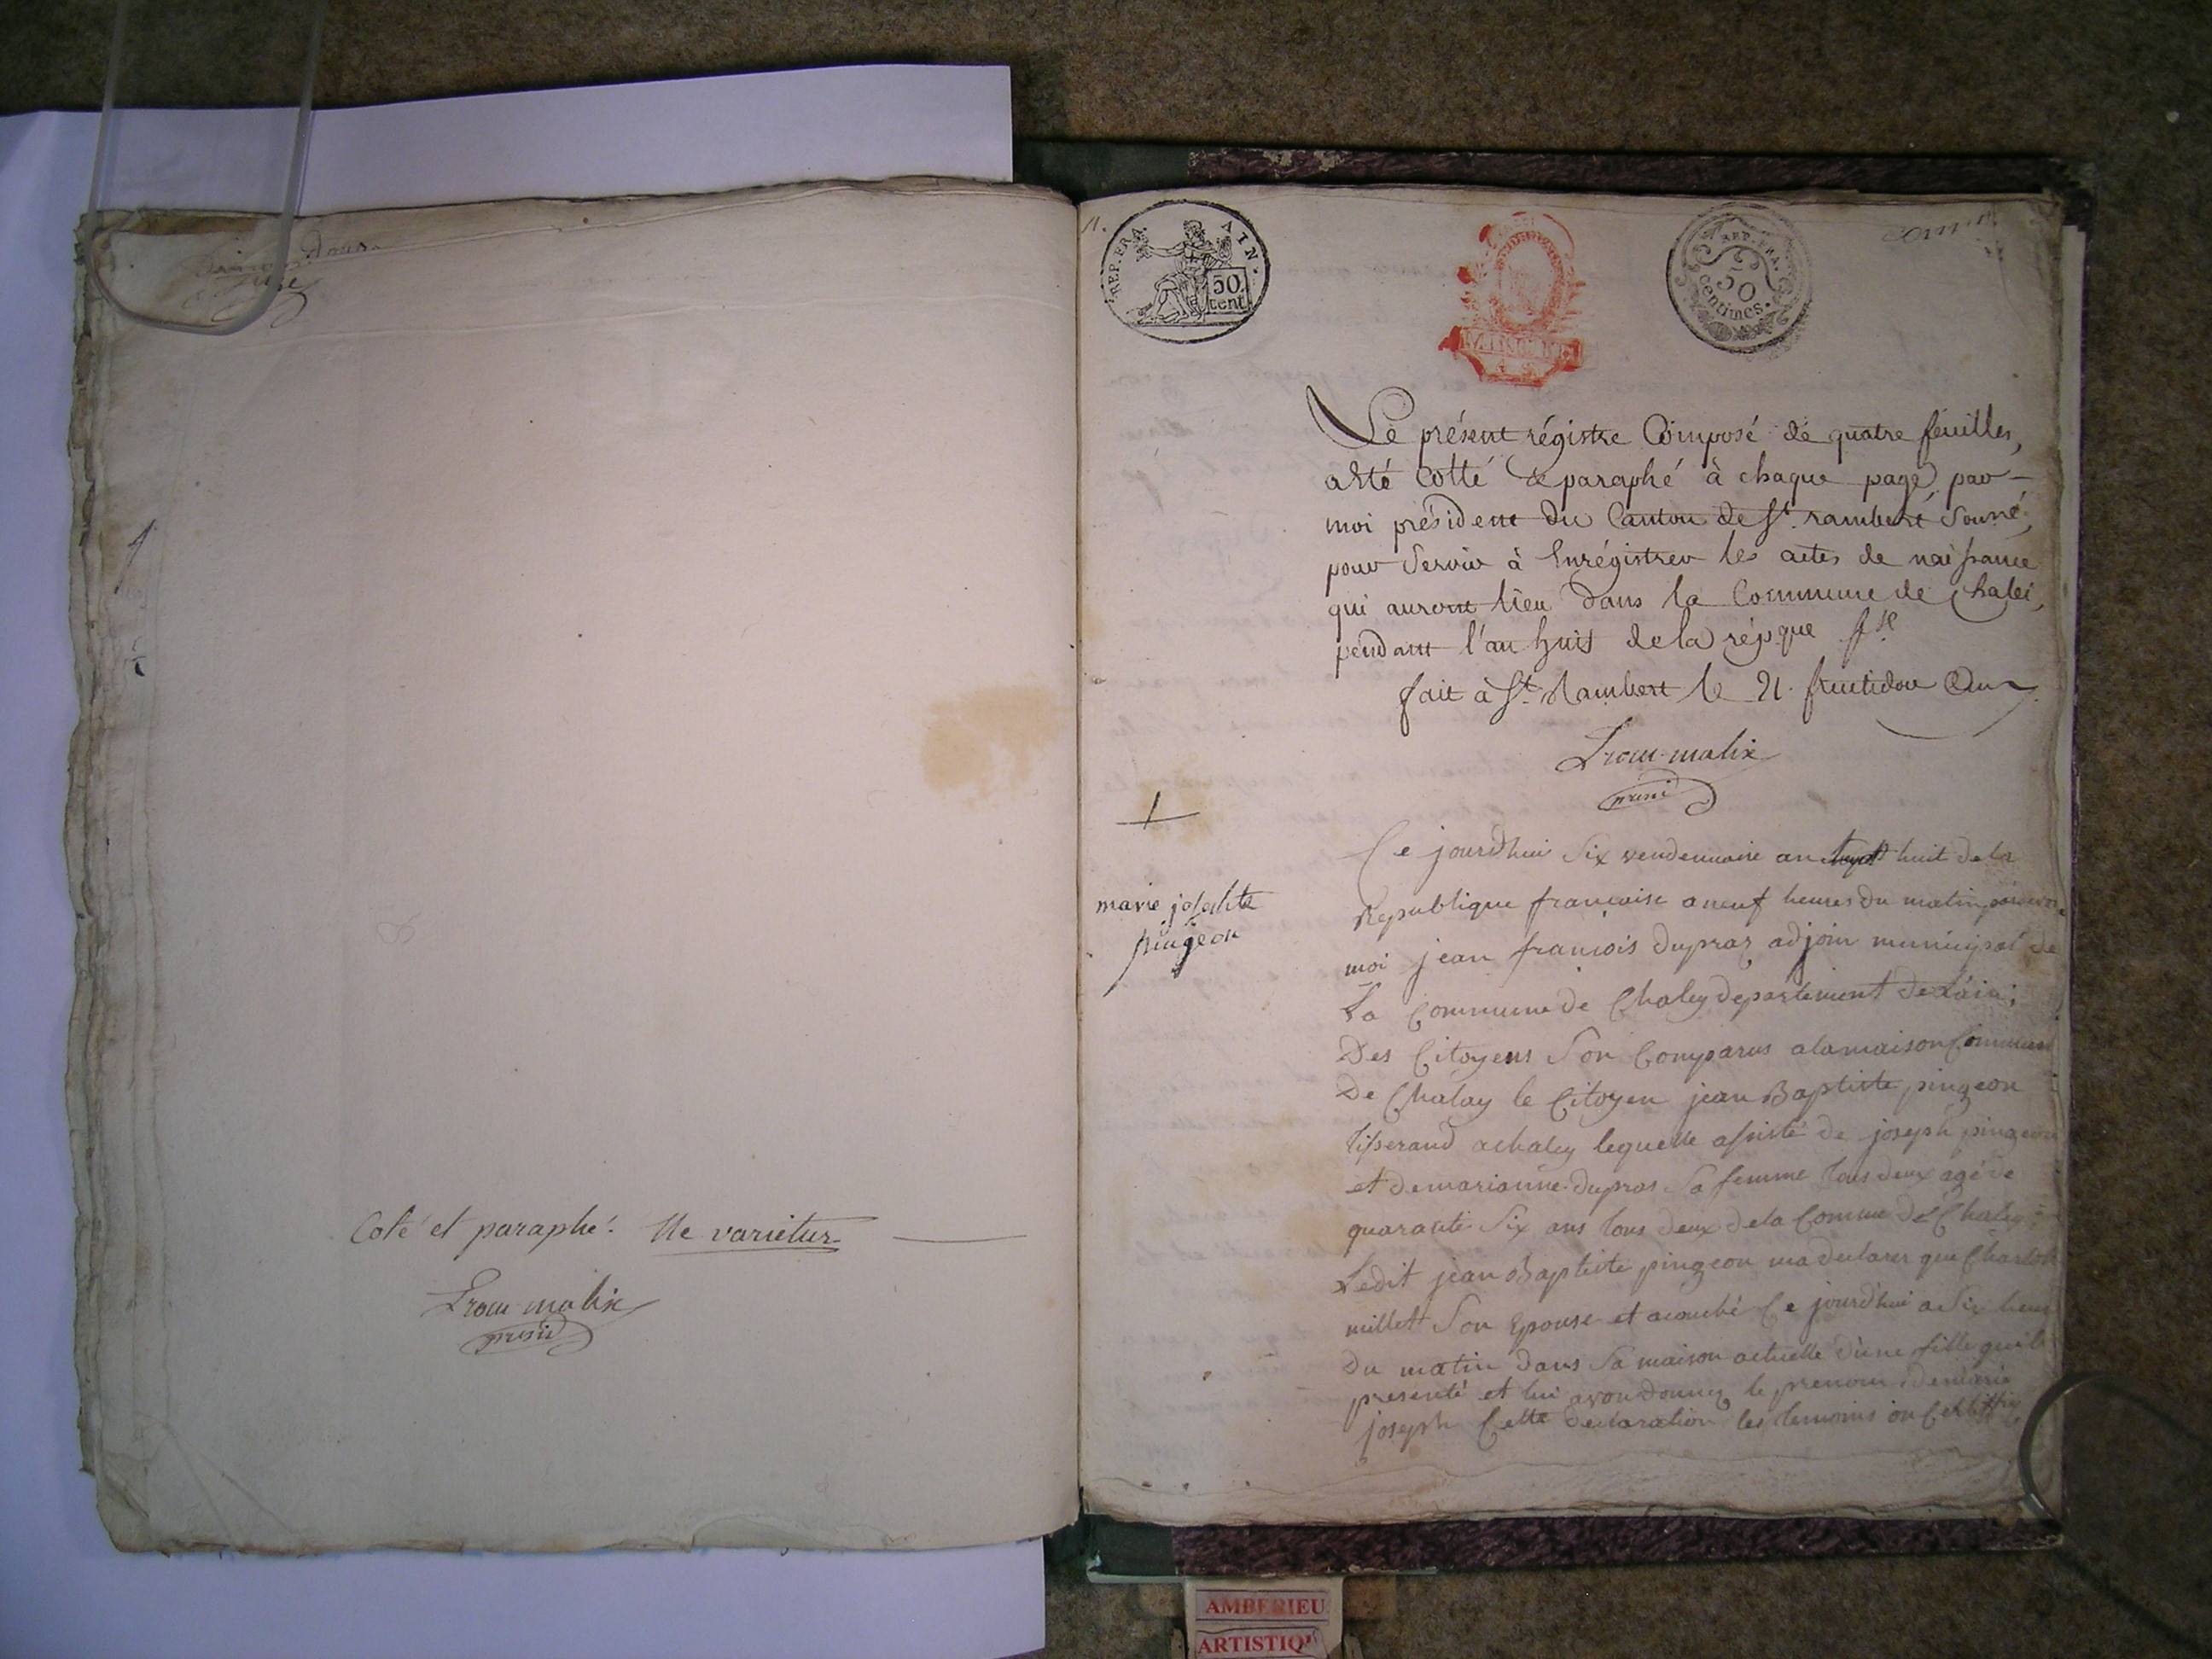 Coté et paraphé. Ne varietur
presid
11.
REP. FRA.
50
cent.
REP. FRA.
50
centimes.
Le présent régistre Composé de quatre feuilles,
a été Cotté & paraphé à chaque page par
moi président du Canton de St. rambert Soussé,
pour Servir à Enrégistrer les actes de naissance
qui auront lieu dans la Commune de Chalei,
pendant l'an huit de la répque fse
fait à St. Rambert le 21 fructidor
presid
Ce jourdhui Six vendemiaire an huit de la
Republique francaise a neuf heures du matin
moi jean francois dupraz adjoin municipal de
La Commune de Chaley departement de Lain;
Des Citoyens Son Comparus a la maison Commune
De Chaley le Citoyen jean Baptiste pingeon
tisserand a chaley lequelle assisté de joseph pingeon
et de marianne dupras Sa femme tous deux agé de
quarante Six ans tous deux de la Commune de Chaley
Ledit jean Baptiste pingeon ma declarer que
millet Son Epouse et acouché Ce jourdhui a Six heures
Du matin dans Sa maison actuelle d'une fille quil
presenté et lui avon donnez le prenom de marie
joseph Cette declaration les temoins on
marie
pingeon
AMBERIEU
ARTISTIQU